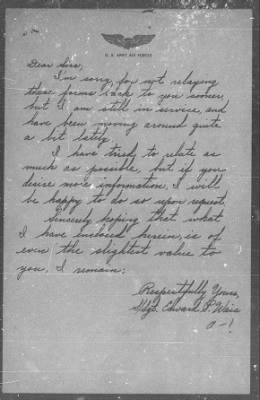 U. S. ARMY AIR FORCES
Dear Sirs,
I'm sorry for not relaying
these forms back to you sooner,
but I am still in service, and
have been moving around quite
a bit lately.
I have tried to relate as
much as possible, but if your
desire more information, I will
be happy to do so upon request.
Sincerely hoping that what
I have enclosed herein, is of
even the slightest value to
you, I remain:
Respectfully Yours,
S/Sgt. Edward P.